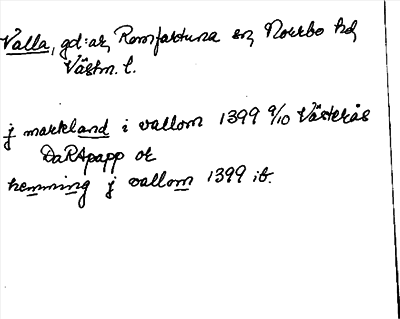 Valla, gd:ar, Romfartuna sn, Norrbo hd,
Västm. l.
j markland i vallom 1399 9/10 Västerås
DaRApapp or
hemming j vallom 1399 ib.